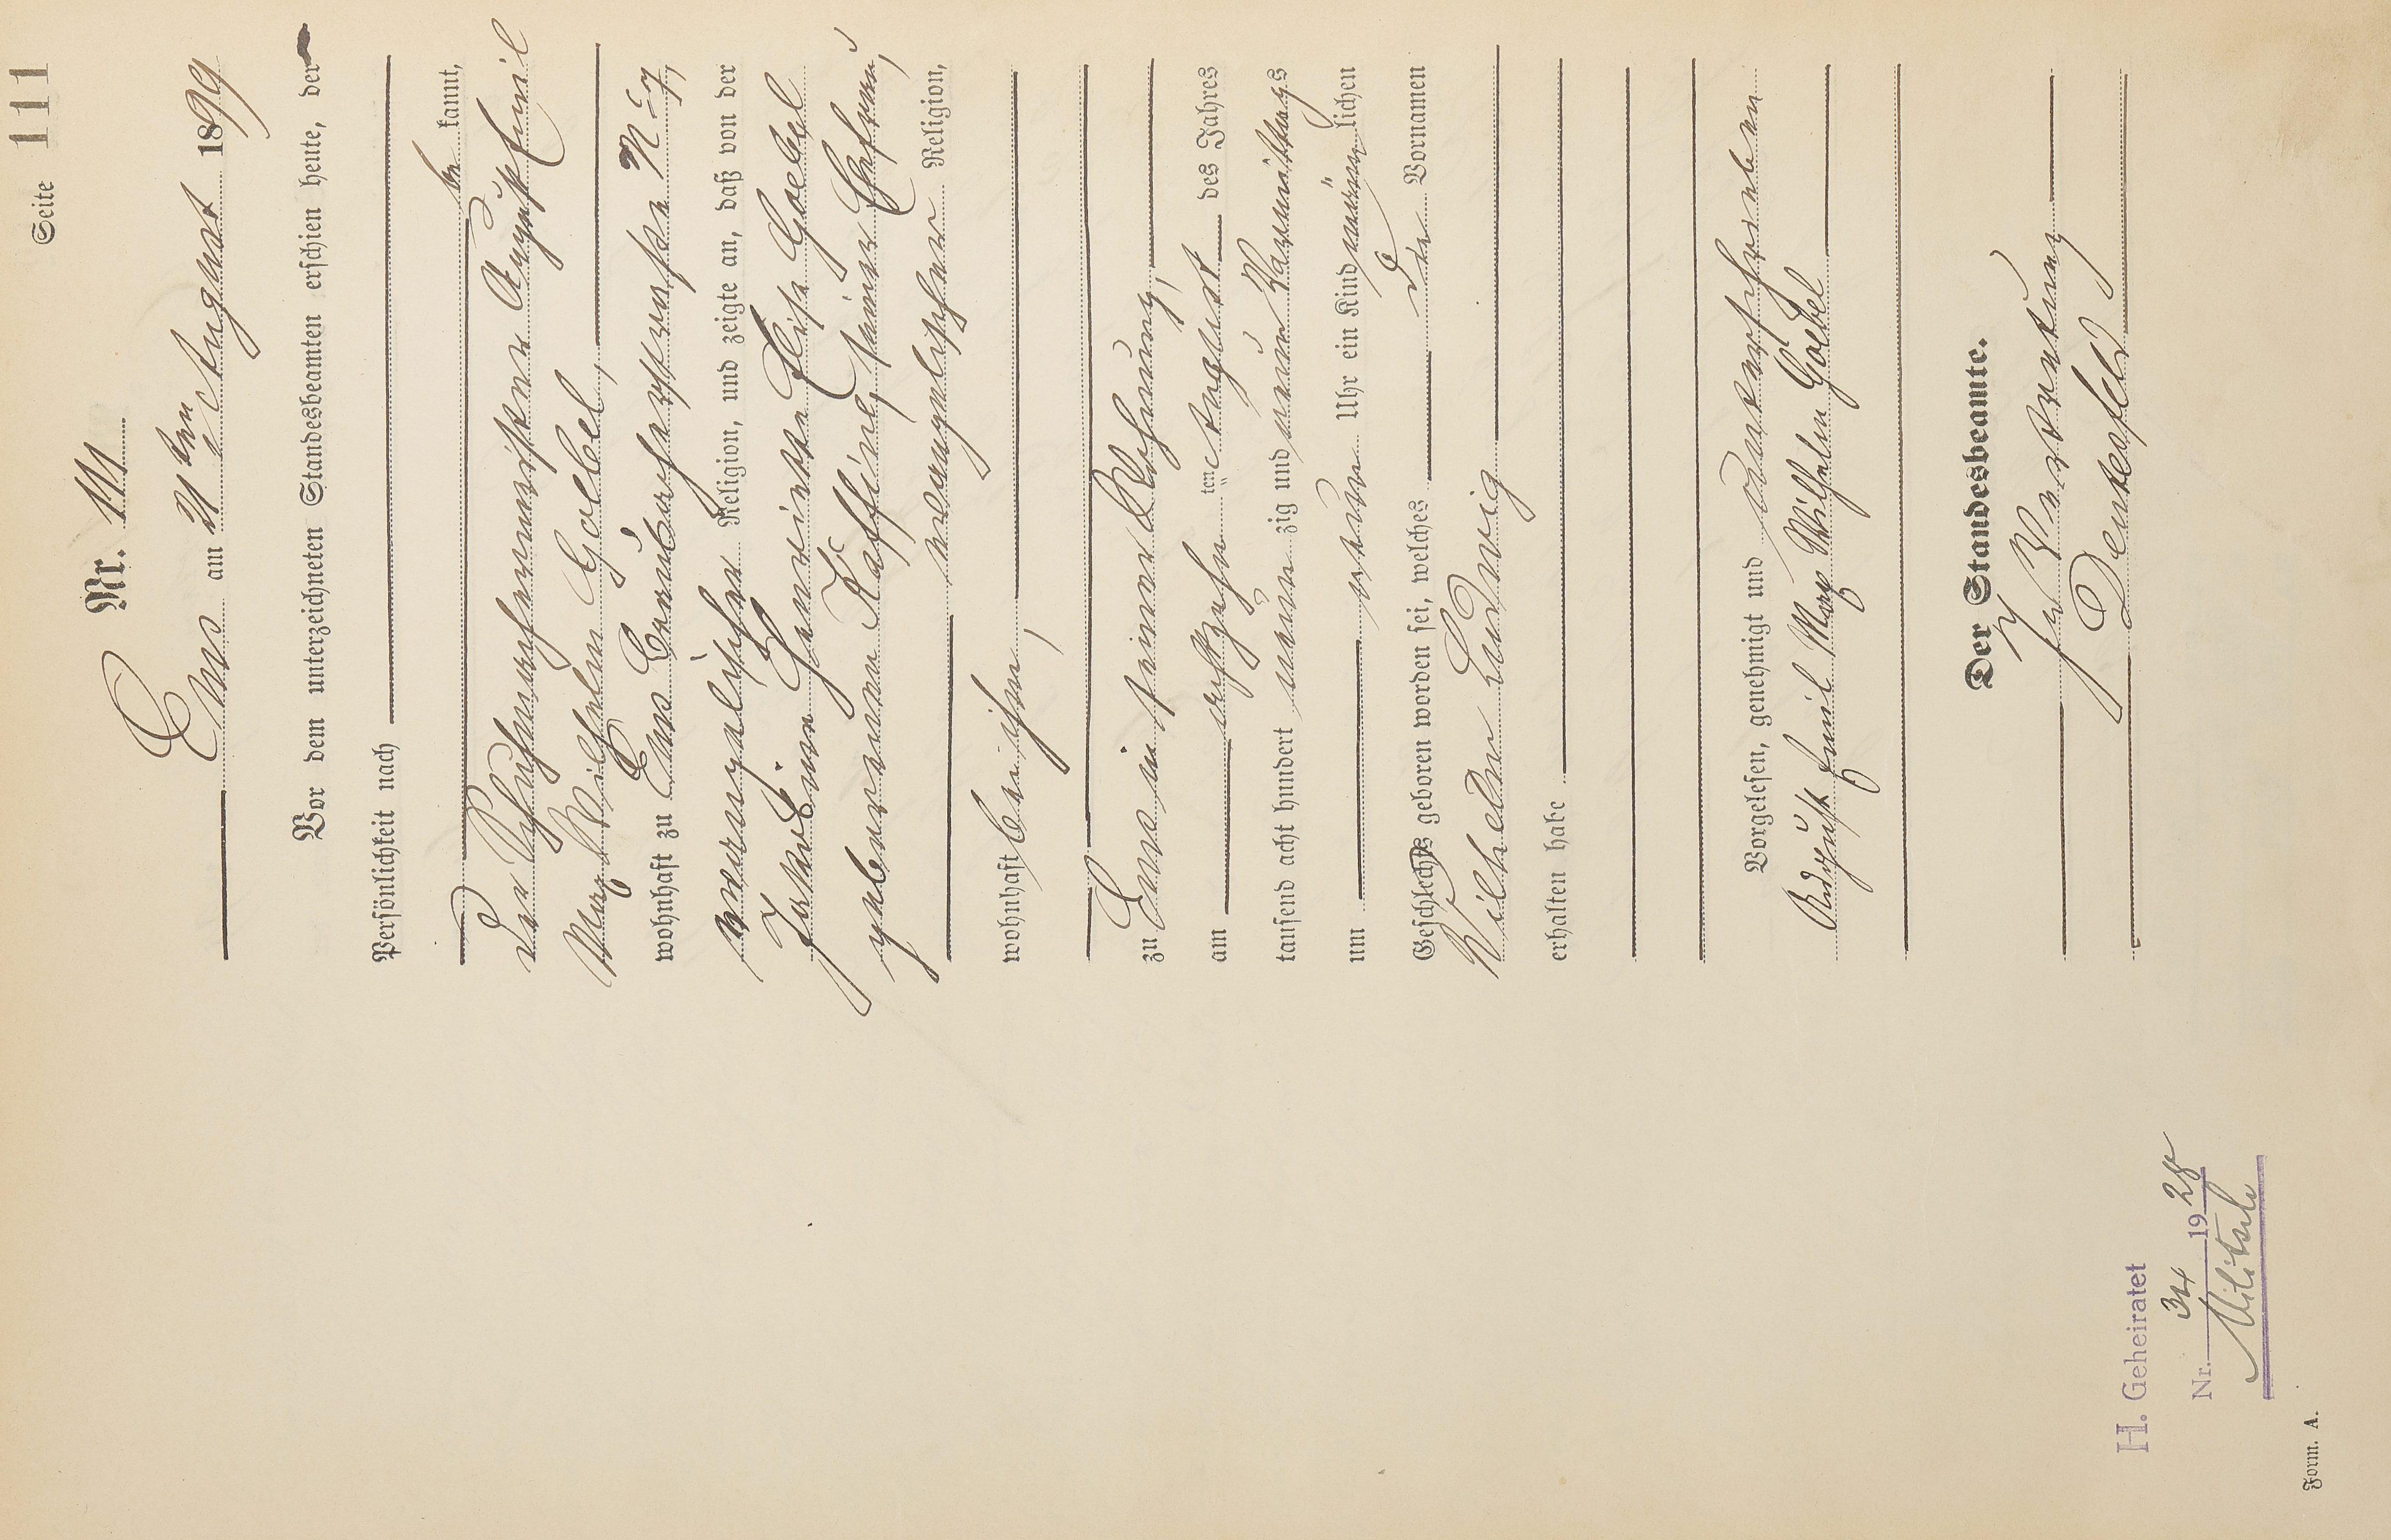 Seite 111
Nr. 111
Ems am 21ten August 1899
Vor dem unterzeichneten Standesbeamten erschien heute, der
Persönlichkeit nach
be kannt,
der Schuhmachermeister August Emil
Max Wilhelm Goebel,
wohnhaft zu Ems
evangelischer Religion, und zeigte an, daß von der
Henriette Elise Goebel
geborenen seiner Ehefrau,
evangelischer Religion,
wohnhaft bei ihm,
zu Ems in seiner Wohnung,
am achtzehn ten August des Jahres
tausend acht hundert neun zig und neun Vormittags
um Uhr ein Kind männ lichen
Geschlechts geboren worden sei, welches die Vornamen
Wilhelm Ludwig
erhalten habe
Vorgelesen, genehmigt und unterschrieben
August Emil Max Wilhelm Goebel
Der Standesbeamte.
In Vertretung
H. Geheiratet
Nr. 34 1928
Form. A.